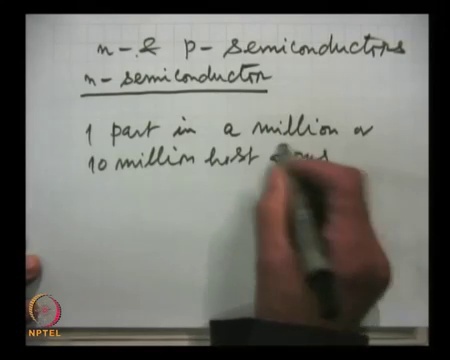 n- & p- semiconductors
n- semiconductor
1 part in a million or
10 million host
NPTEL